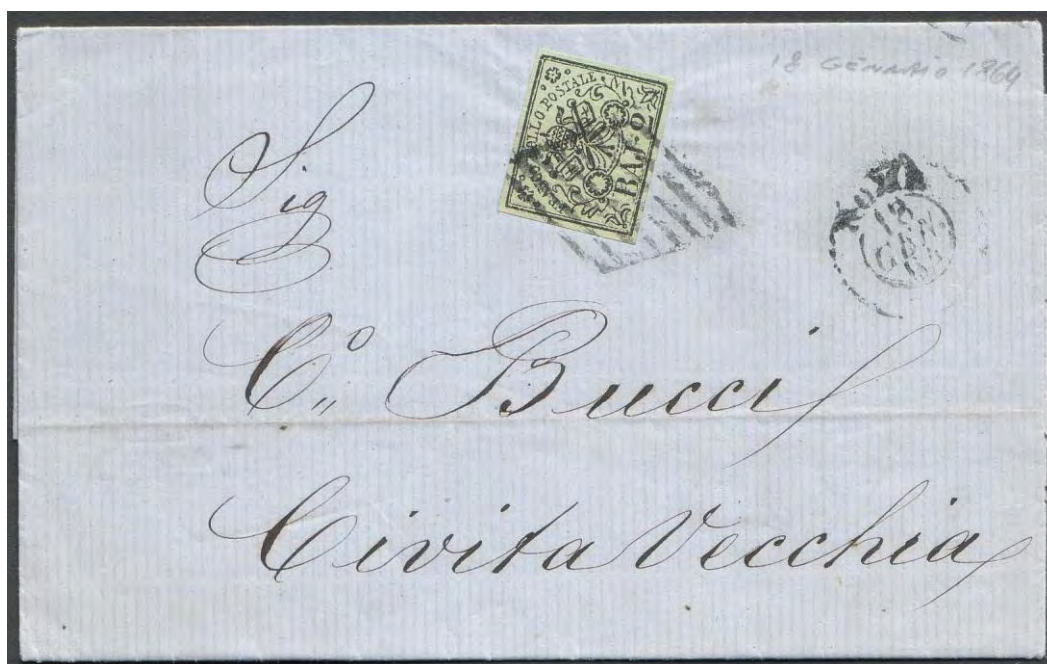 18 GENNAIO 1864
BOLLO POSTALE
BAJ. 2
ROMA
18
GEN
64
Sig
C.º Bucci
Civita Vecchia